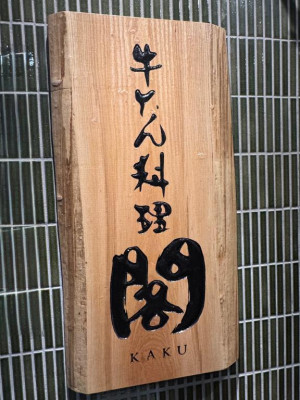 牛たん料理
閣
KAKU